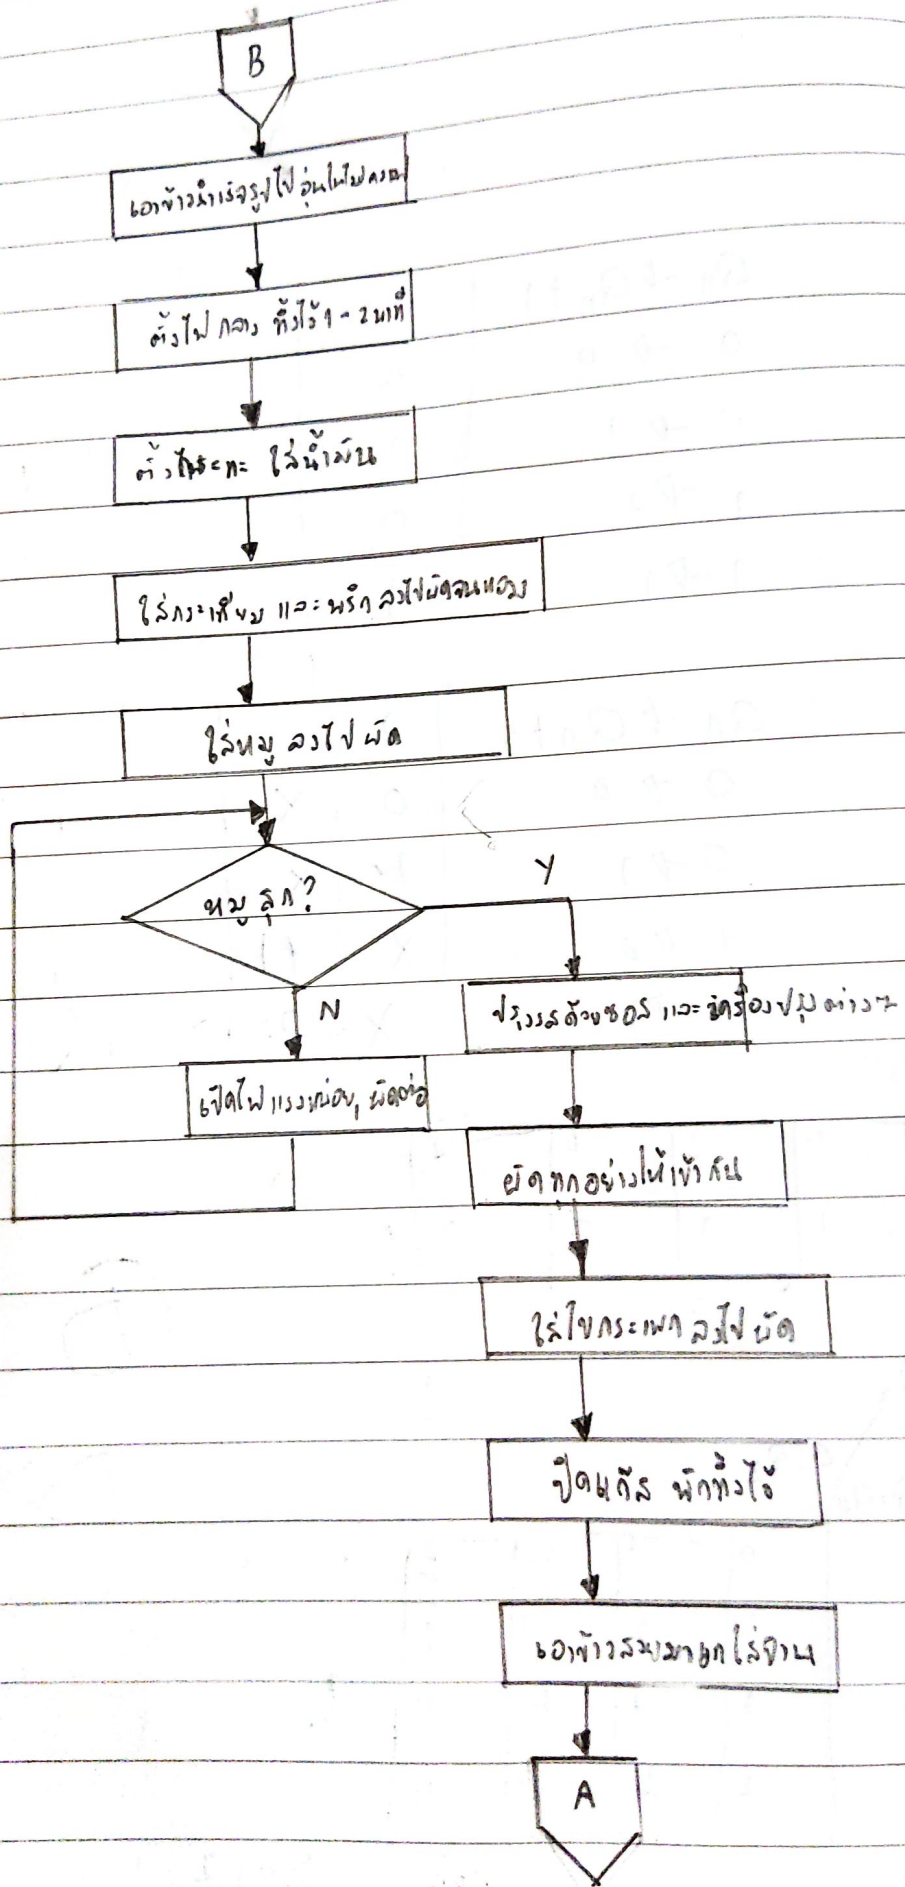 B
เอาข้าวสำเร็จรูปไปอุ่นในไมโครเวฟ
ตั้งไฟ กลาง ทิ้งไว้ 1-2 นาที
ตั้งกระทะ ใส่น้ำมัน
ใส่กระเทียม และพริก ลงไปผัดจนหอม
ใส่หมู ลงไป ผัด
หมู สุก?
Y
N
ปรุงรสด้วยซอส และเครื่องปรุงต่างๆ
เปิดไฟแรงหน่อย, ผัดต่อ
ผัดทุกอย่างให้เข้ากัน
ใส่ใบกระเพา ลงไป ผัด
ปิดแก๊ส พักทิ้งไว้
เอาข้าวสวยมา ใส่จาน
A